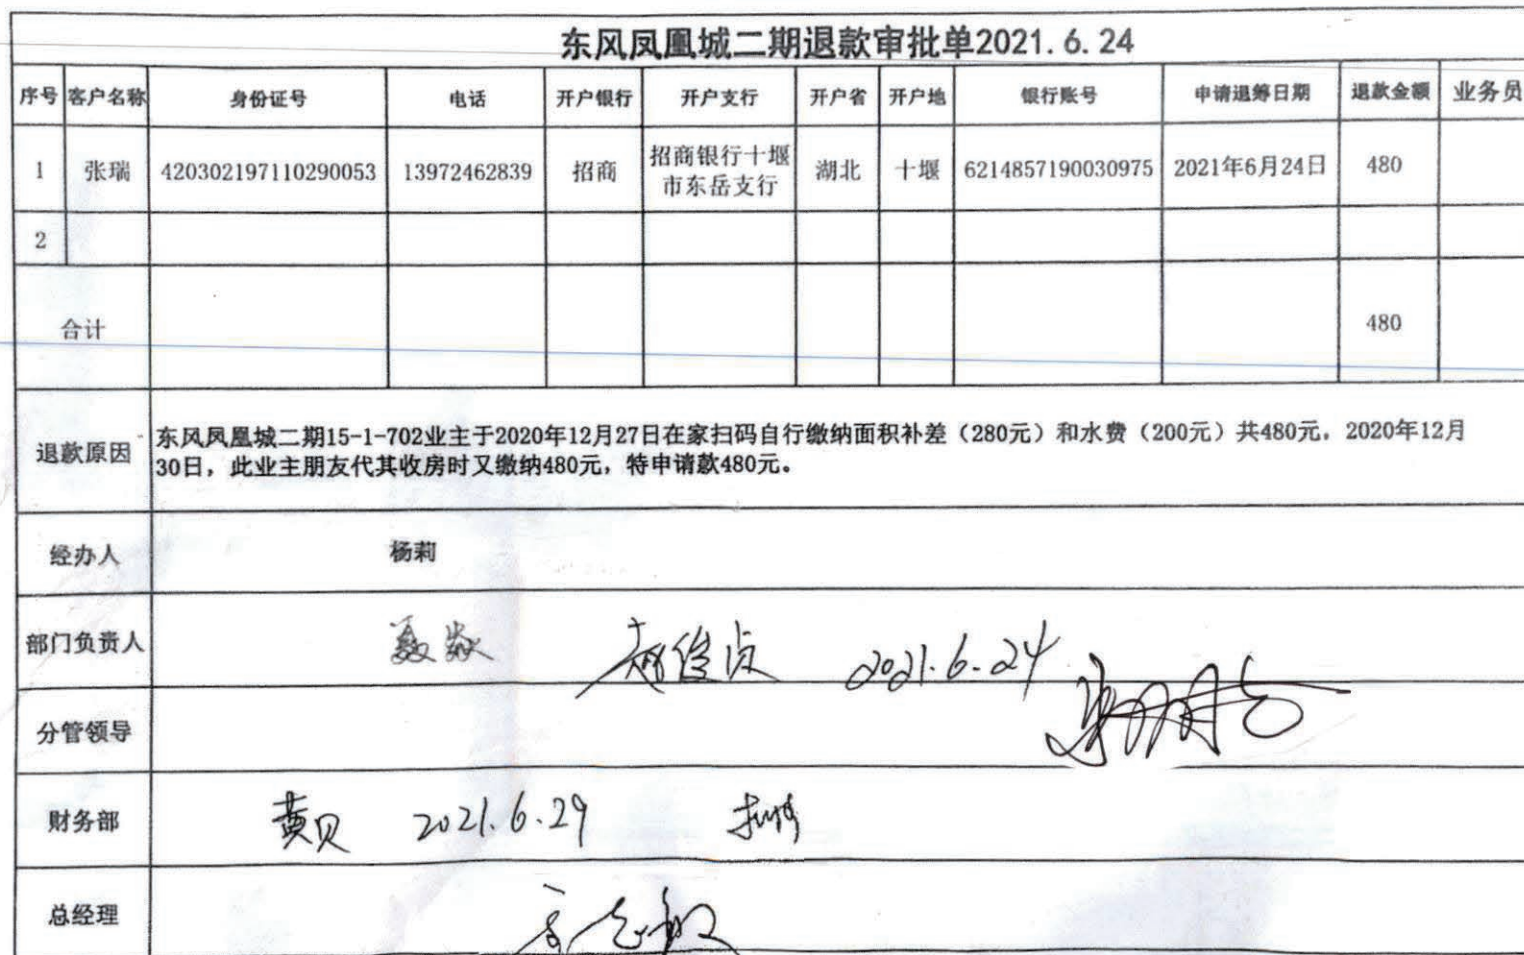 东风凤凰城二期退款审批单2021.6.24
序号 客户名称 身份证号 电话 开户银行 开户支行 开户省 开户地 银行账号 申请退筹日期 退款金额 业务员
1 张瑞 420302197110290053 13972462839 招商 招商银行十堰 湖北 十堰 6214857190030975 2021年6月24日 480
市东岳支行
2
合计 480
退款原因 东风凤凰城二期15-1-702业主于2020年12月27日在家扫码自行缴纳面积补差（280元）和水费（200元）共480元，2020年12月
30日，此业主朋友代其收房时又缴纳480元，特申请款480元。
经办人 杨莉
部门负责人 赵俊贞 2021.6.24
分管领导
财务部 黄贝 2021.6.29
总经理